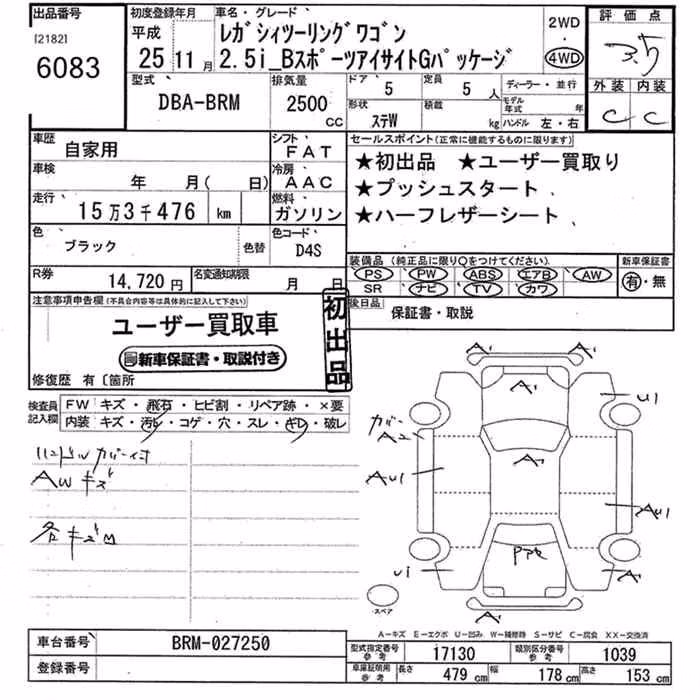 出品番号
[2182]
6083
初度登録年月
平成
25 11 月
車名・グレード
レガシィツーリングワゴン
2.5i_BスポーツアイサイトGパッケージ
2WD
・
4WD
評価点
3.5
外装 内装
C C
型式
DBA-BRM
排気量
2500
CC
ドア
5
定員
5 人
形状
ステW
積載
kg
ディーラー・並行
モデル年式 年
ハンドル 左・右
車歴
自家用
シフト
FAT
車検
年 月( 日)
冷房
AAC
走行
15万3千476 km
燃料
ガソリン
色
ブラック
色替
色コード
D4S
R券
14,720円
名変通知期限
月 日
セールスポイント(正常に機能するものに限ります)
★初出品 ★ユーザー買取り
★プッシュスタート
★ハーフレザーシート
装備品 (純正品に限り○をつけてください)
PS PW ABS エアB AW
SR ナビ TV カワ
新車保証書
有・無
後日品
保証書・取説
注意事項申告欄(不具合内容等は具体的に記入して下さい)
ユーザー買取車
新車保証書・取説付き
初出品
修復歴 有 〔箇所
検査員記入欄
FW キズ・飛石・ヒビ割・リペア跡・×要
内装 キズ・汚レ・コゲ・穴・スレ・ギレ・破レ
AWキズ
各キズM
A1 A1
A1
U1
カバー
A2
A1
AU1
AU1
U1
A1
A1
スペア
A−キズ E−エクボ U−凹み W−補修跡 S−サビ C−腐食 XX−交換済
車台番号
BRM-027250
登録番号
型式指定番号
参考
17130
類別区分番号
参考
1039
車庫証明用
参考
長さ
479 cm
幅
178 cm
高さ
153 cm